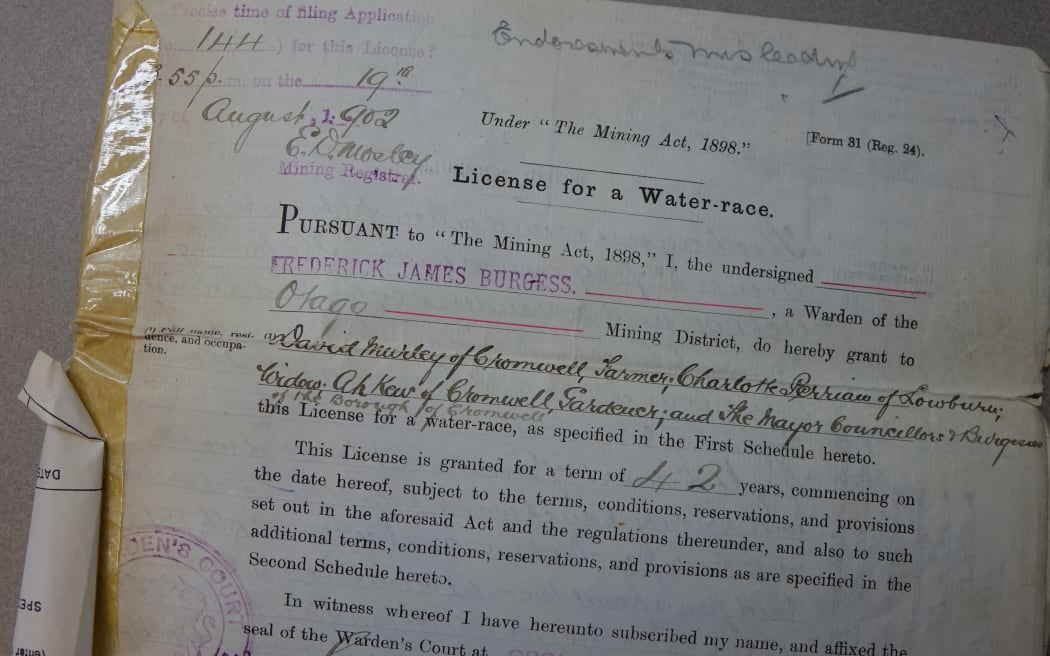 Precise time of filing Application
144) for this License:
55 p.m. on the 19th
August, 1902
E. D. Mosley
Mining Registrar.
Endorsements misleading
Under "The Mining Act, 1898."
[Form 31 (Reg. 24).
License for a Water-race.
PURSUANT to "The Mining Act, 1898," I, the undersigned
FREDERICK JAMES BURGESS. , a Warden of the
Otago Mining District, do hereby grant to
(1) Full name, resi-
dence, and occupa-
tion.
David Murley of Cromwell, Farmer; Charlotte Perriam of Lowburn;
Widow. Ah Kew of Cromwell, Gardener; and The Mayor Councillors & Burgesses
of the Borough of Cromwell
this License for a water-race, as specified in the First Schedule hereto.
This License is granted for a term of 42 years, commencing on
the date hereof, subject to the terms, conditions, reservations, and provisions
set out in the aforesaid Act and the regulations thereunder, and also to such
additional terms, conditions, reservations, and provisions as are specified in the
Second Schedule hereto.
In witness whereof I have hereunto subscribed my name, and affixed the
seal of the Warden's Court at
DEN'S COURT
DATE
SPE